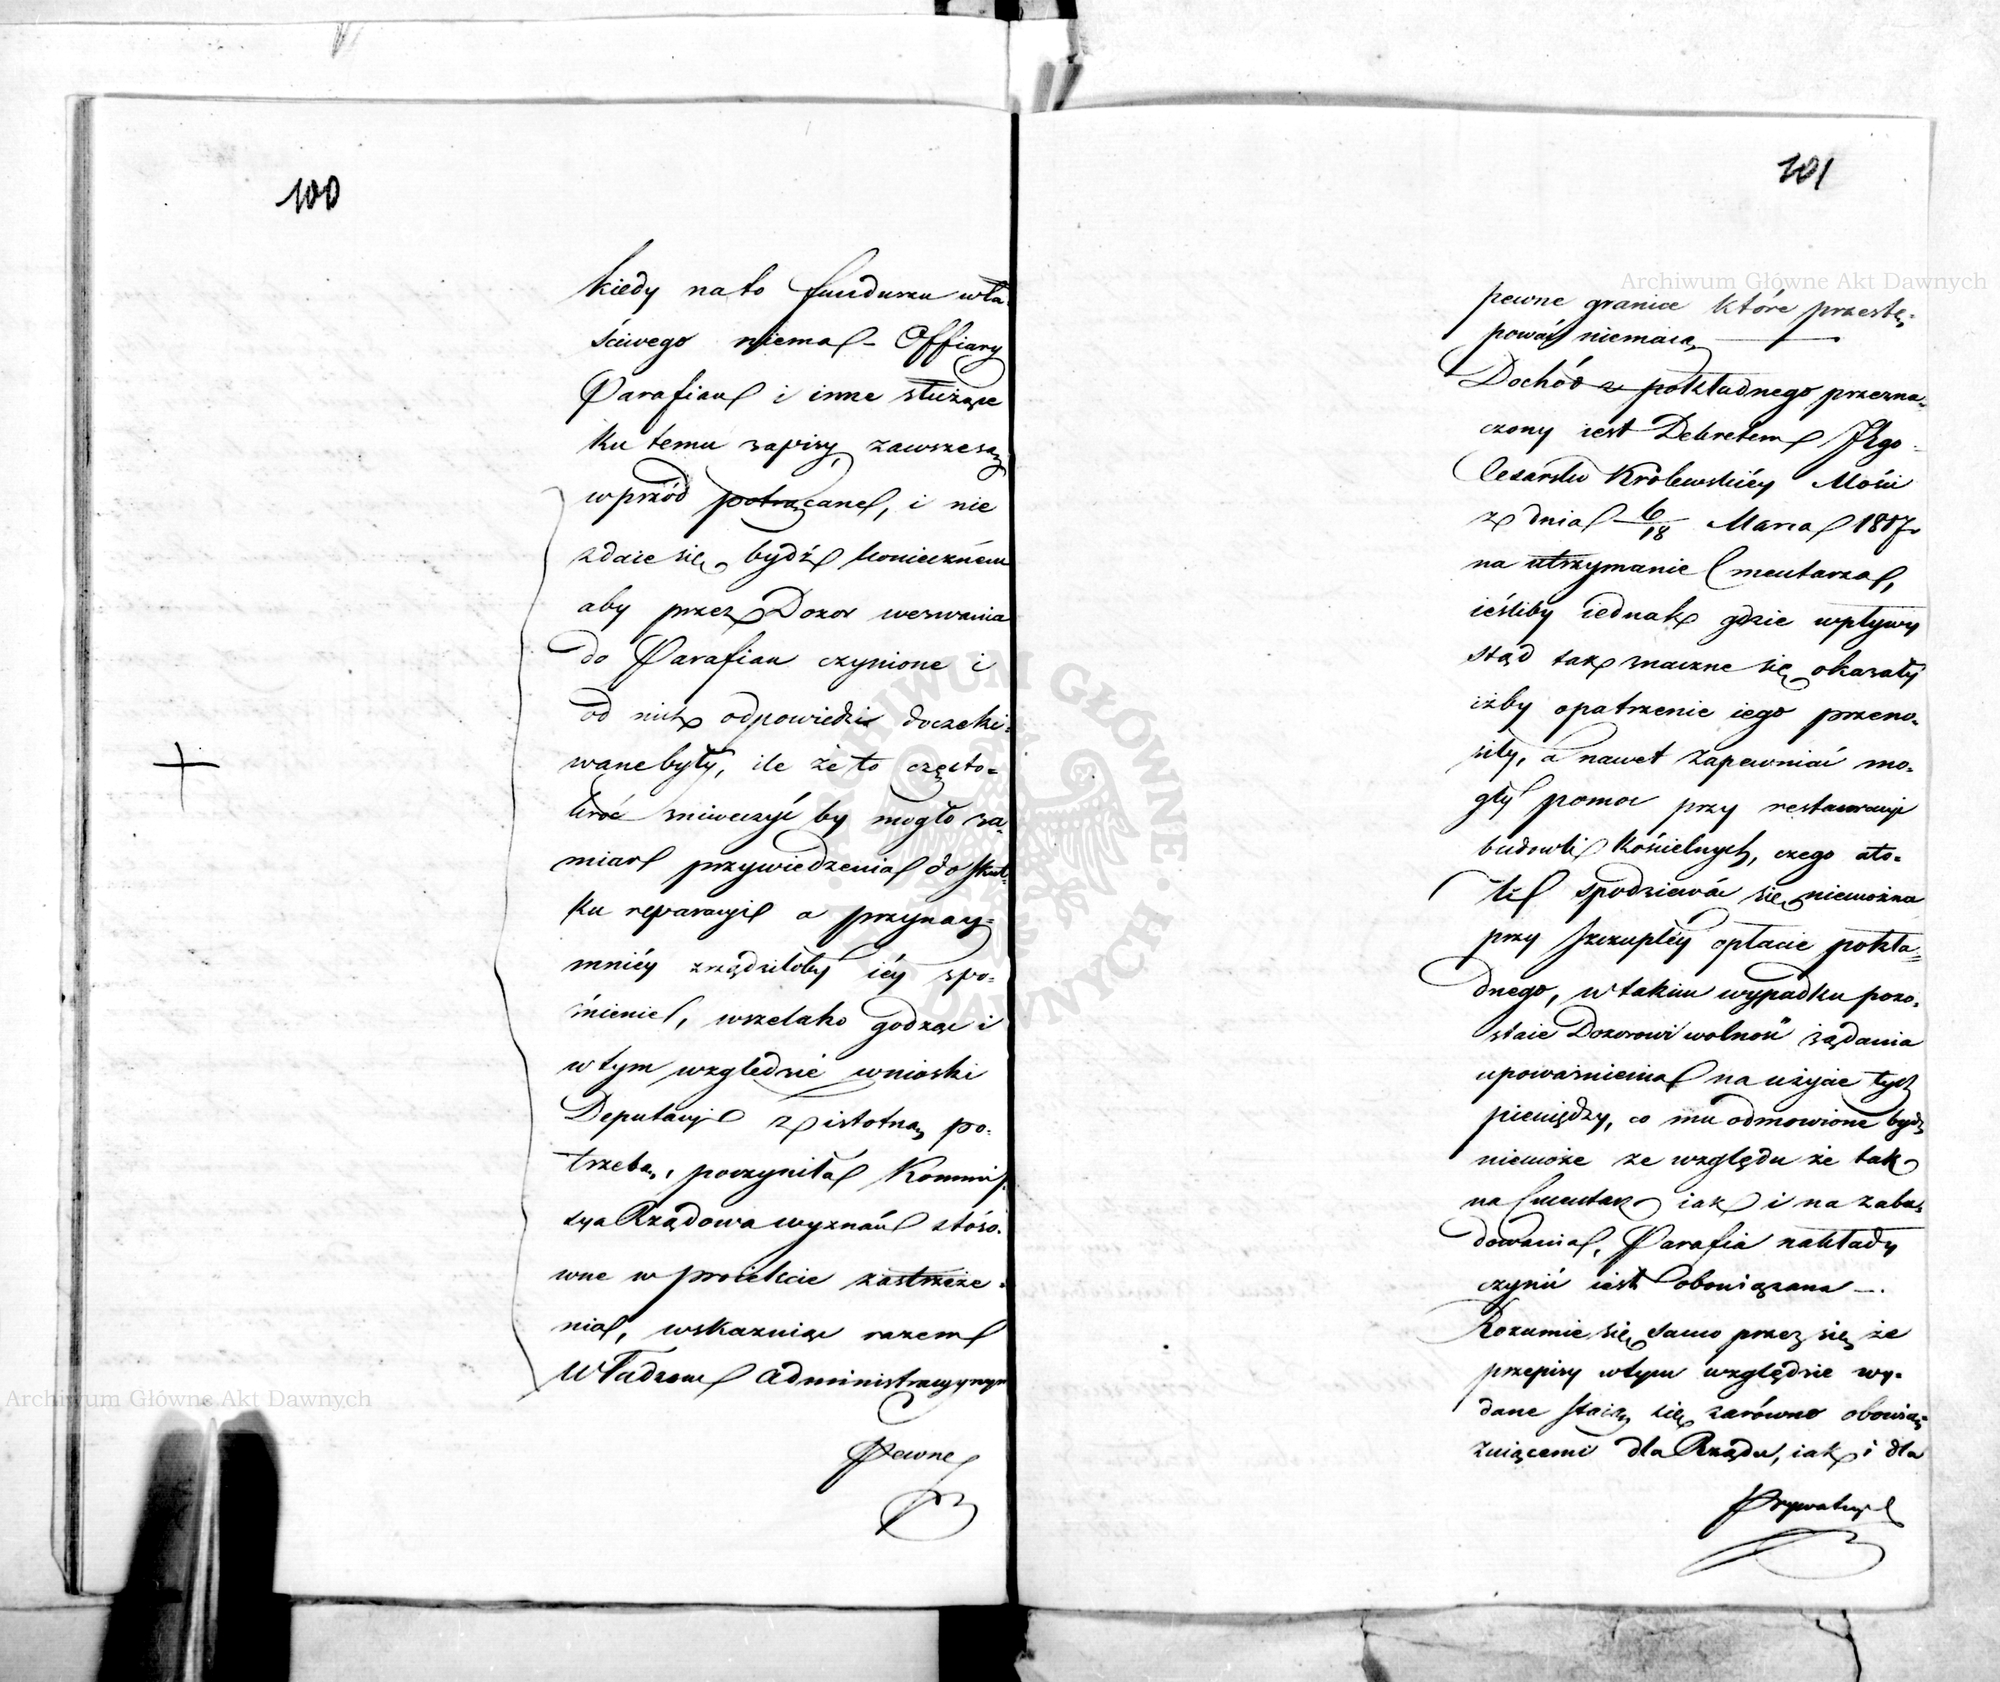 100
kiedy na to funduszu wła-
ściwego niema - Offiary
Parafian i inne służące
ku temu zapisy, zawsze są
wprzód potrącane, i nie
zdaie się bydź koniecznem
aby przez Dozor wezwania
do Parafian czynione i
od nich odpowiedzi doczeki-
wane były, ile że to często-
kroć zniweczyć by mogło za-
miar przywiedzenia do skut-
ku reparacyi a przynay-
mniéy zrządziłoby iéy spo-
źnienie, wszelako godząc i
w tym względzie wnioski
Deputacyi z istotną po-
trzebą, poczyniła Kommis-
sya Rządowa wyznań stóso-
wne w proiekcie zastrzeże-
nia, wskazuiąc razem
Władzom administracyynym
pewne
101
pewne granice które przestę-
pować niemaią
Dochód z pokładnego przezna-
czony iest Dekretem JEgo
Cesarsko Królewskiéy Mości
z dnia 6/18 Marca 1817
na utrzymanie Cmentarza,
ieśliby iednak gdzie wpływy
stąd tak znaczne się okazały
iżby opatrzenie iego przeno-
siły, a nawet zapewniać mo-
gły pomoc przy restauracyi
budowli Kościelnych, czego ato-
li spodziewać się niemożna
przy szczupłéy opłacie pokła-
dnego, w takim wypadku pozo-
staie Dozorowi wolność żądania
upoważnienia na użycie tych
pieniędzy, co mu odmówione bydź
niemoże ze względu że tak
na Cmentarz iak i na zabu-
dowania, Parafia nakłady
czynić iest obowiązana -.
Rozumie się samo przez się że
przepisy w tym względzie wy-
dane staią się zarówno obowią-
zuiącemi dla Rządu, iak i dla
prywatnych
Archiwum Główne Akt Dawnych
Archiwum Główne Akt Dawnych
ARCHIWUM GŁÓWNE AKT DAWNYCH